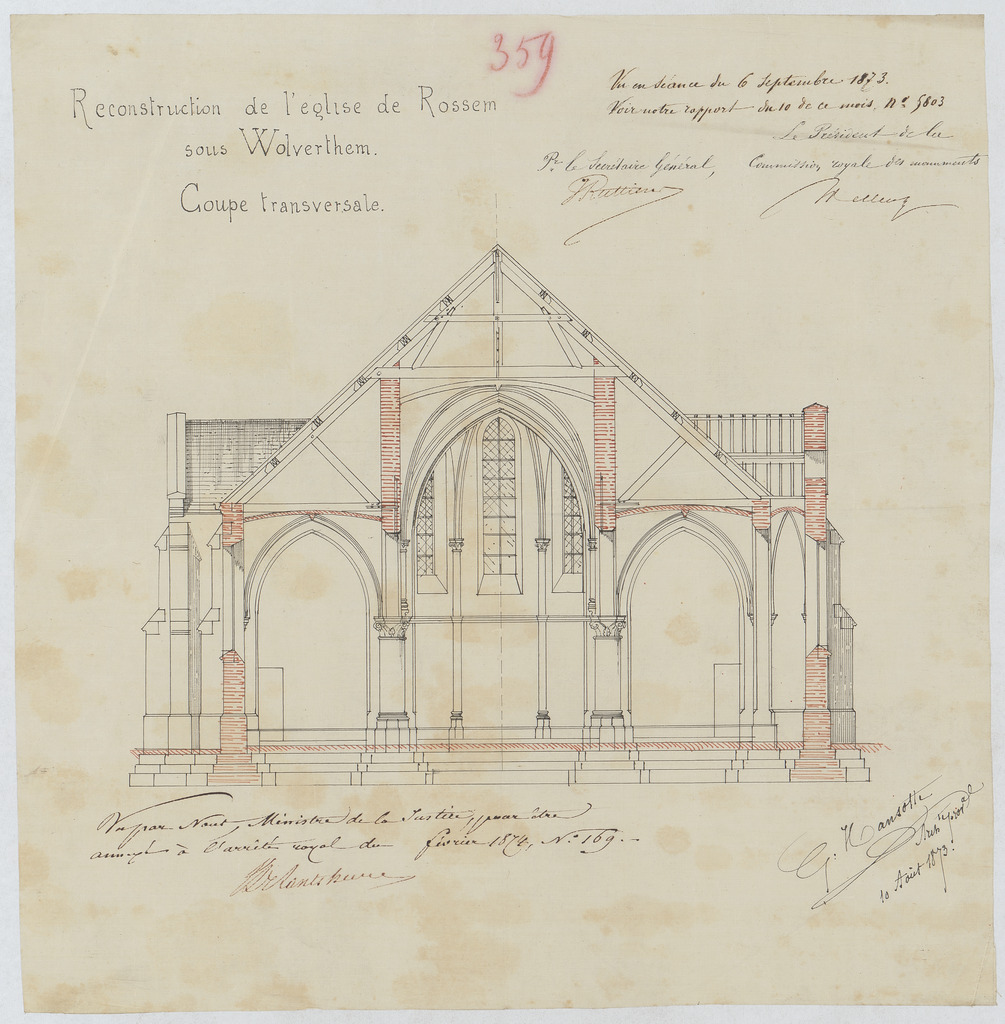 359
Reconstruction de l'église de Rossem
sous Wolverthem.
Coupe transversale.
Vu en séance du 6 Septembre 1873.
Voir notre rapport du 10 de ce mois, N° 5803
Le Président de la
Pr. le Secrétaire Général, Commission royale des monuments
Vu par Nous, Ministre de la Justice, pour être
annexé à l'arrêté royal du février 1874, N° 169.
G. Hansotte
Arch. proval
10 Août 1873.